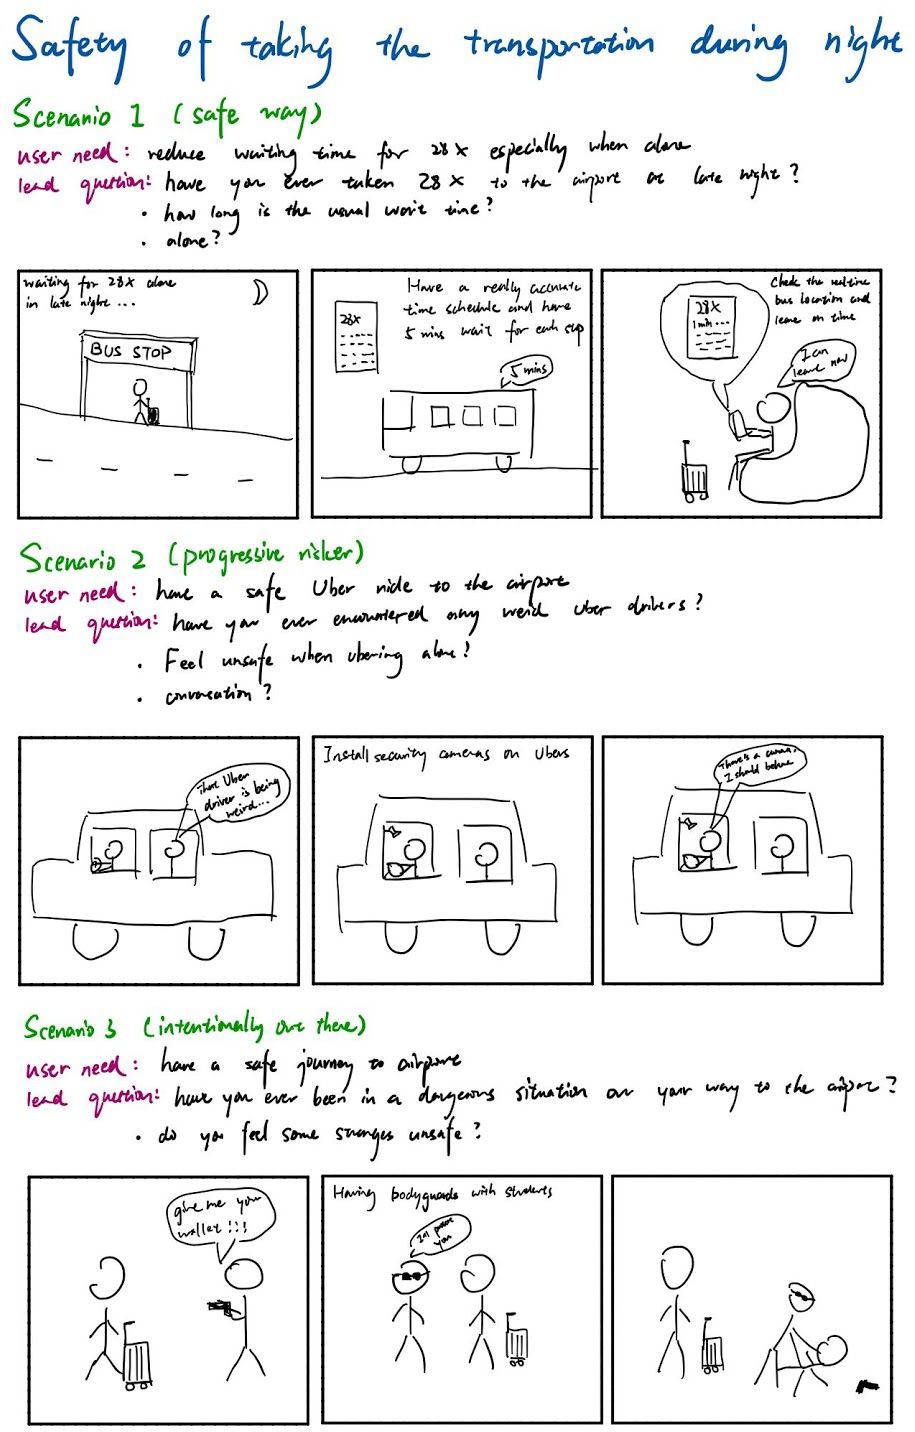 Safety of taking the transportation during night
Scenario 1 (safe way)
user need: reduce waiting time for 28X especially when alone
lead question: have you ever taken 28X to the airport at late night?
• how long is the usual wait time?
• alone?
waiting for 28X alone
in late night ...
BUS STOP
Have a really accurate
time schedule and have
5 mins wait for each stop
28X
5 mins
Check the realtime
bus location and
leave on time
28X
1 min ...
I can
leave now
Scenario 2 (progressive risker)
user need: have a safe Uber ride to the airport
lead question: have you ever encountered any weird Uber drivers?
• Feel unsafe when ubering alone?
• conversation?
Uber
driver is being
weird...
Install security cameras on Ubers
There's a camera,
I should behave
Scenario 3 (intentionally out there)
user need: have a safe journey to airport
lead question: have you ever been in a dangerous situation on your way to the airport?
• do you feel some stranges unsafe?
give me your
wallet!!!
Having bodyguards with students
I'll protect
you